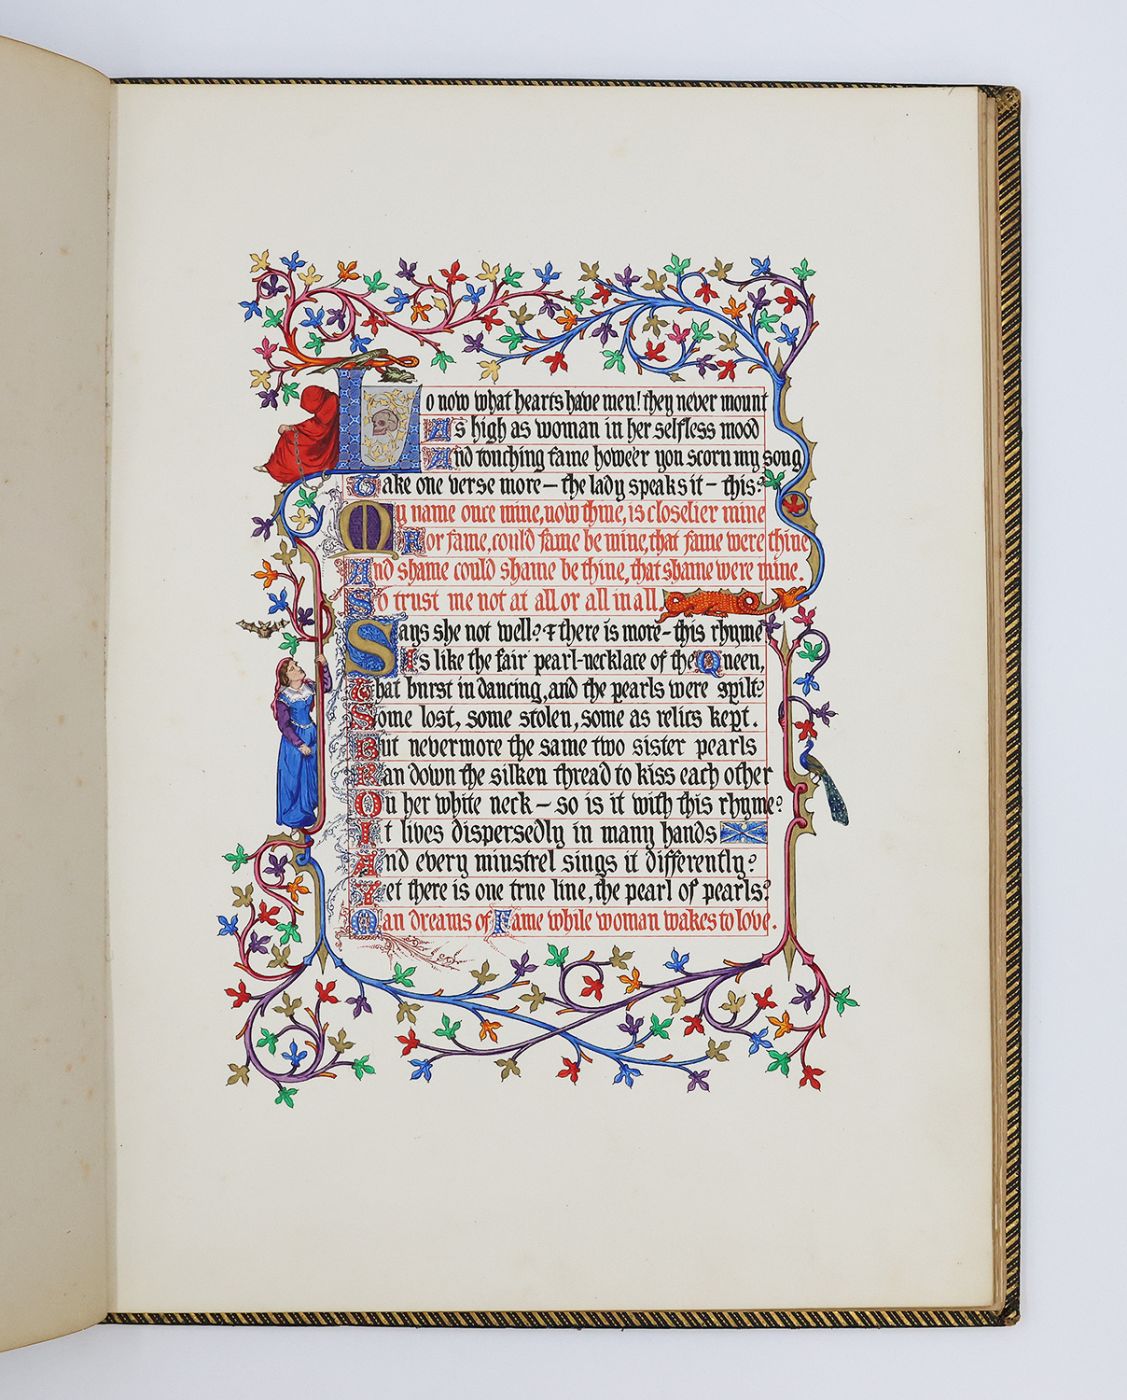 Lo now what hearts have men! they never mount
As high as woman in her selfless mood
And touching fame howe'er you scorn my song
Take one verse more — the lady speaks it — this?
My name once mine, now thine, is closelier mine
For fame, could fame be mine, that fame were thine,
And shame could shame be thine, that shame were mine.
So trust me not at all or all in all.
Says she not well? & there is more — this rhyme
Is like the fair pearl-necklace of the Queen,
That burst in dancing, and the pearls were spilt?
Some lost, some stolen, some as relics kept.
But nevermore the same two sister pearls
Ran down the silken thread to kiss each other
On her white neck — so is it with this rhyme?
It lives dispersedly in many hands
And every minstrel sings it differently?
Yet there is one true line, the pearl of pearls?
Man dreams of Fame while woman wakes to love.